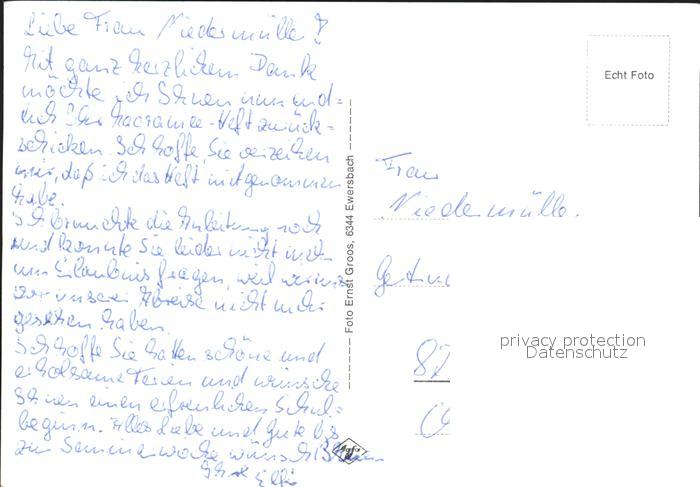 Liebe Frau Niedermüller!
Mit ganz herzlichem Dank
möchte ich Ihnen nun end=
lich Ihr Macramee-Heft zurück=
schicken. Ich hoffe, Sie verzeihen
mir, daß ich das Heft mitgenommen
habe.
Ich brauchte die Anleitung noch
und konnte Sie leider nicht mehr
um Erlaubnis fragen, weil wir uns
vor unserer Abreise nicht mehr
gesehen haben.
Ich hoffe Sie hatten schöne und
erholsame Ferien und wünsche
Ihnen einen erfreulichen Schul=
beginn. Alles Liebe und Gute bis
zur Seminarwoche wünscht Ihnen
Ihre Elfi
Foto Ernst Groos, 6344 Ewersbach
Echt Foto
Frau
Niedermüller
privacy protection
Datenschutz